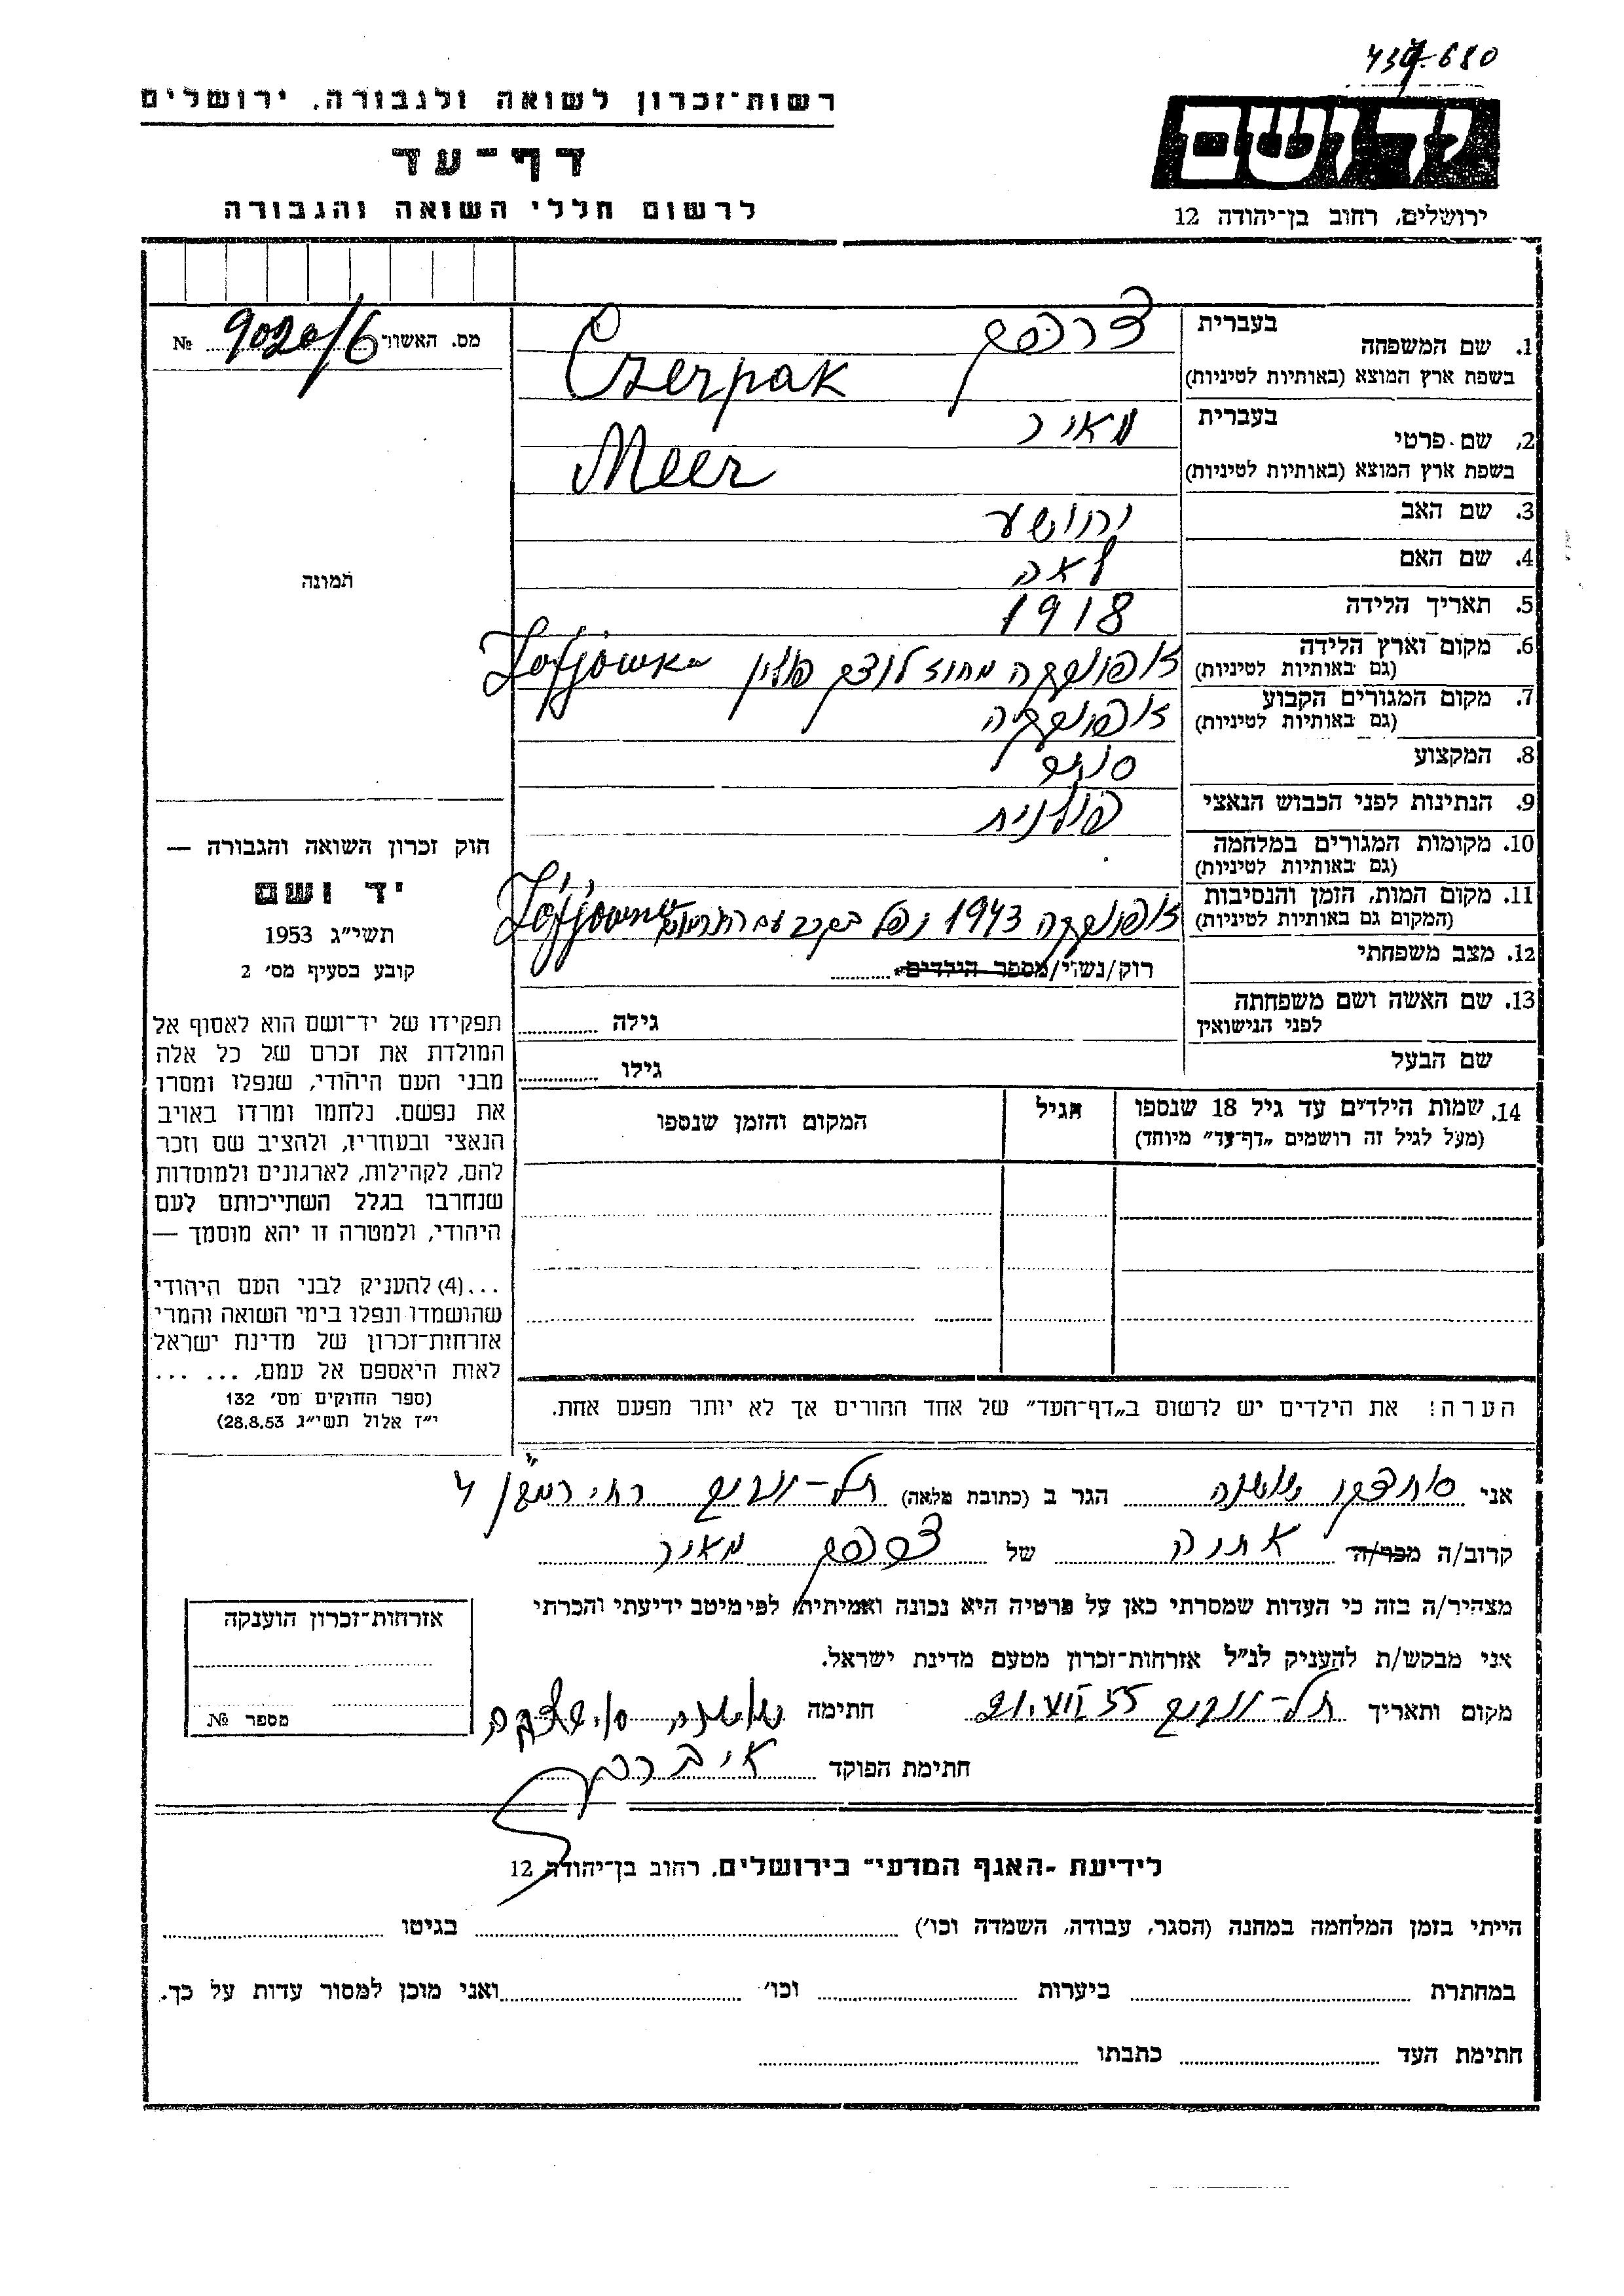 439680
רשות־זכרון לשואה ולגבורה, ירושלים
דף־עד
לרשום חללי השואה והגבורה
יד ושם
ירושלים, רחוב בן־יהודה 12
מס. האשור № 9020/6
1. שם המשפחה
בעברית
בשפת ארץ המוצא (באותיות לטיניות) Czerpak
2. שם פרטי
בעברית מאיר
בשפת ארץ המוצא (באותיות לטיניות) Meer
3. שם האב יהושע
4. שם האם לאה
5. תאריך הלידה 1918
6. מקום וארץ הלידה
(גם באותיות לטיניות) זופיובקה מחוז לוצק פולין Zofjowka
7. מקום המגורים הקבוע
(גם באותיות לטיניות) זופיובקה
8. המקצוע
9. הנתינות לפני הכבוש הנאצי פולנית
10. מקומות המגורים במלחמה
(גם באותיות לטיניות)
11. מקום המות, הזמן והנסיבות
(המקום גם באותיות לטיניות) זופיובקה 1943 נפל בקרב עם
12. מצב משפחתי
רוק/נשוי/מספר הילדים
13. שם האשה ושם משפחתה
לפני הנישואין
גילה
שם הבעל
גילו
14. שמות הילדים עד גיל 18 שנספו
(מעל לגיל זה רושמים „דף־עד” מיוחד)
הגיל
המקום והזמן שנספו
הערה! את הילדים יש לרשום ב„דף־העד” של אחד ההורים אך לא יותר מפעם אחת.
תמונה
חוק זכרון השואה והגבורה —
יד ושם
תשי״ג 1953
קובע בסעיף מס׳ 2
תפקידו של יד־ושם הוא לאסוף אל
המולדת את זכרם של כל אלה
מבני העם היהודי, שנפלו ומסרו
את נפשם, נלחמו ומרדו באויב
הנאצי ובעוזריו, ולהציב שם וזכר
להם, לקהילות, לארגונים ולמוסדות
שנחרבו בגלל השתייכותם לעם
היהודי, ולמטרה זו יהא מוסמך —
...(4) להעניק לבני העם היהודי
שהושמדו ונפלו בימי השואה והמרי
אזרחות־זכרון של מדינת ישראל
לאות היאספם אל עמם, ... ...
(ספר החוקים מס׳ 132
י״ז אלול תשי״ג 28.8.53)
אני שושנה הגר ב (כתובת מלאה) תל־ רח׳ 4
קרוב/ה מכר/ה אחות של צרפק מאיר
מצהיר/ה בזה כי העדות שמסרתי כאן על פרטיה היא נכונה ואמיתית, לפי מיטב ידיעתי והכרתי
אני מבקש/ת להעניק לנ״ל אזרחות־זכרון מטעם מדינת ישראל.
מקום ותאריך תל־ 21.VII.55 חתימה שושנה
חתימת הפוקד
אזרחות־זכרון הוענקה
מספר №
לידיעת ״האגף המדעי״ בירושלים, רחוב בן־יהודה 12
הייתי בזמן המלחמה במחנה (הסגר, עבודה, השמדה וכו׳) בגיטו
במחתרת ביערות וכו׳ ואני מוכן למסור עדות על כך.
חתימת העד כתבתו